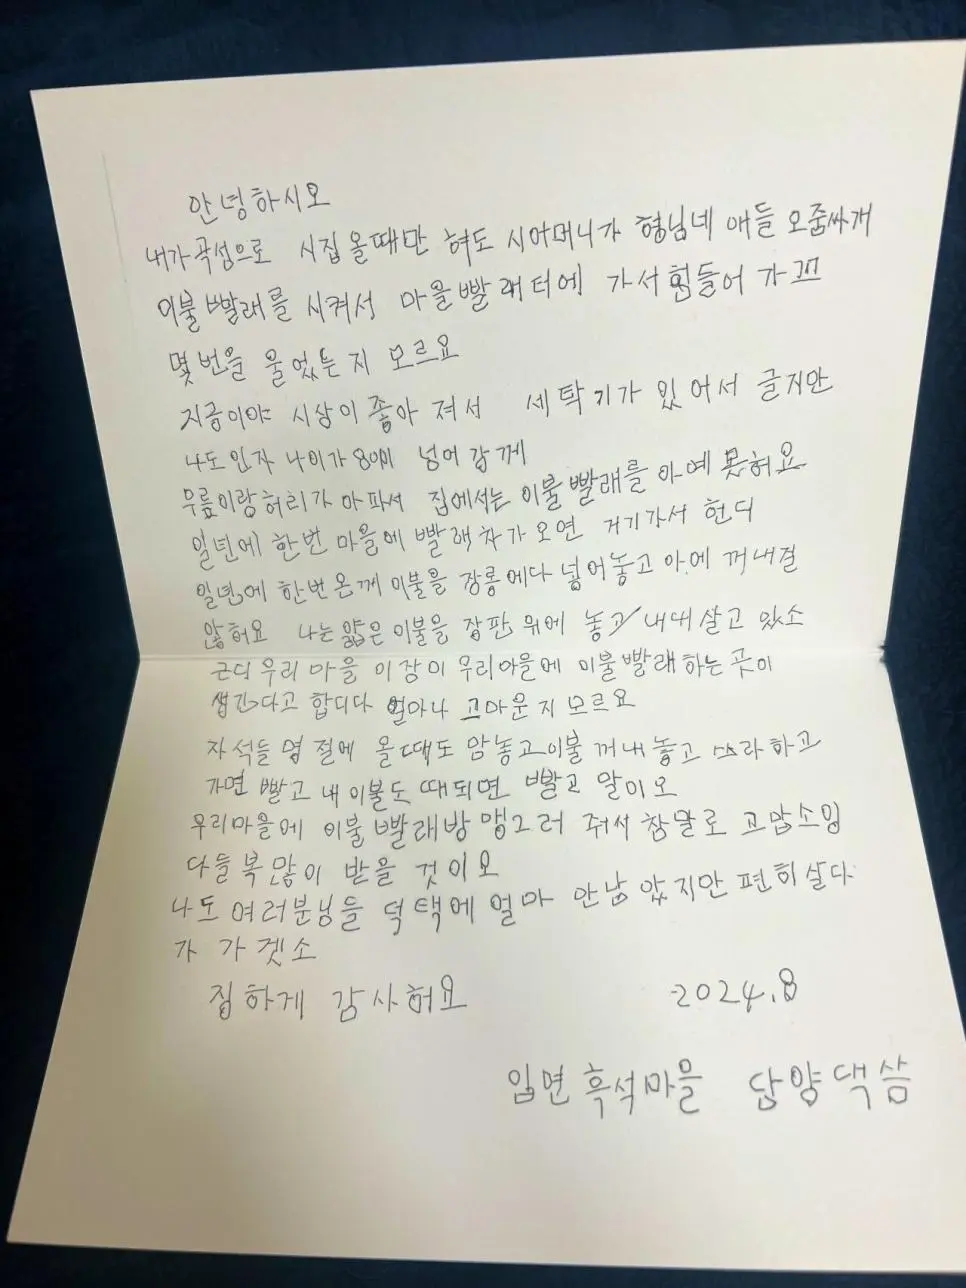 안녕하시오
내가곡성으로 시집올때만 혀도 시어머니가 형님네 애들 오줌싸개
이불빨래를 시켜서 마을빨래터에 가서힘들어 가꼬
몇번을 울었든지 모르요
지금이야 시상이 좋아 져서 세탁기가 있어서 글지만
나도인자 나이가 80이 넘어감께
무릎이랑허리가 아파서 집에서는 이불빨래를 아예 못혀요
일년에 한번 마을에 빨래차가오면 거기가서 헌디
일년에 한번온께 이불을 장롱에다 넣어놓고 아에 꺼내질
않혀요 나는 얇은 이불을 장판위에 놓고 내내살고 있소
근디우리 마을 이장이 우리마을에 이불빨래하는곳이
생긴다고 합디다 얼마나 고마운지 모르요
자석들 명절에 올때도 암놓고이불 꺼내놓고 쓰라하고
가면 빨고 내이불도 때되면 빨고 말이오
우리마을에 이불빨래방 맹그러 줘서 참말로 고맙소잉
다들복많이 받을 것이오
나도 여러분님들 덕택에 얼마 안남았지만 편히살다
가 가겟소
집하게 감사혀요 2024.8
입면흑석마을 담양댁삼